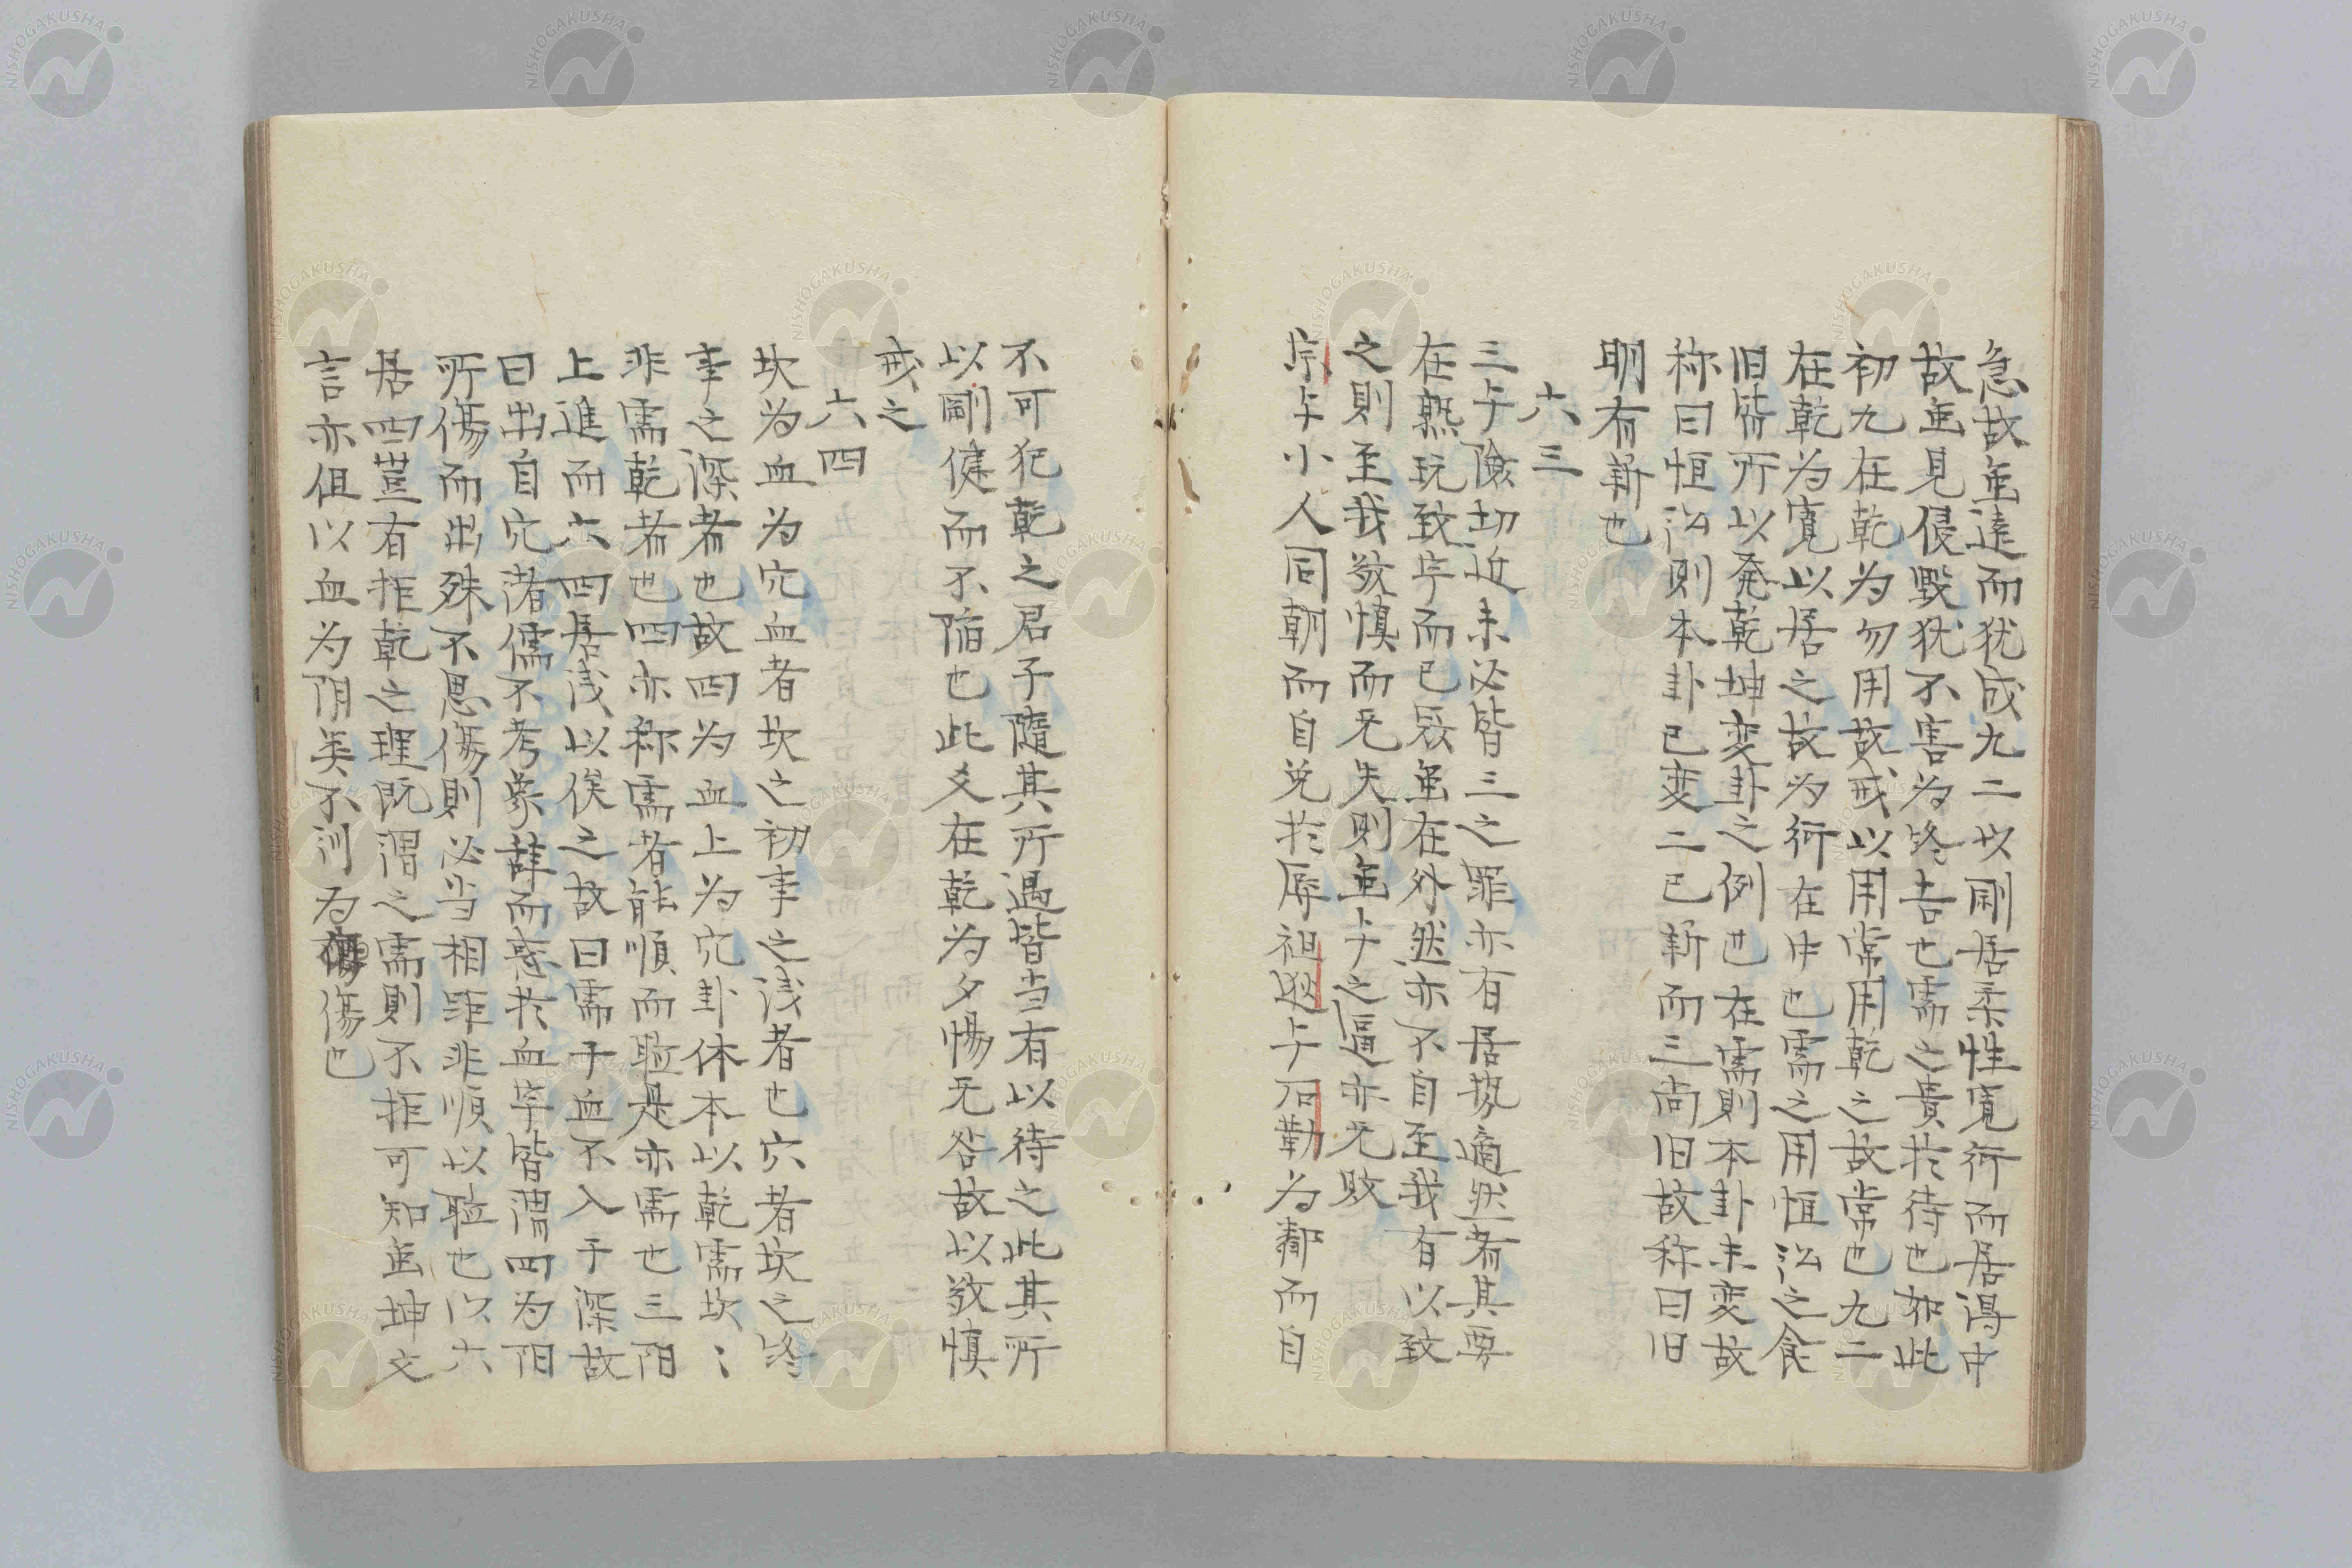 急故虽遠而犹成九二以剛居柔性寛衍而居得中
故虽見侵毀犹不害为终吉也需之貴於待也如此
初九在乾为勿用故戒以用常用乾之故常也九二
在乾为寛以居之故为衍在中也需之用恒訟之食
旧皆所以発乾坤变卦之例也在需則本卦未变故
称曰恒訟則本卦已变二已新而三尚旧故称曰旧
明有新也
六三
三与險切近未必皆三之罪亦有居势適然者其要
在熟玩致字而已冦虽在外然亦不自至我有以致
之則至我敬慎而无失則虽与之逼亦无敗
崇与小人同朝而自兊於辱祖逖与石勒为鄰而自
不可犯乾之君子隨其所遇皆当有以待之此其所
以剛健而不陥也此爻在乾为夕惕无咎故以敬慎
戒之
六四
坎为血为穴血者坎之初事之浅者也穴者坎之终
事之深者也故四为血上为穴卦体本以乾需坎〻
非需乾者也四亦称需者能順而聴是亦需也三阳
上進而六四居浅以俟之故曰需于血不入于深故
曰出自穴諸儒不考象辞而惑於血字皆謂四为阳
所傷而出殊不思傷則必当相距非順以聴也以六
居四豈有拒乾之理既謂之需則不拒可知虽坤文
言亦但以血为阴类不训为傷也
NISHOGAKUSHA